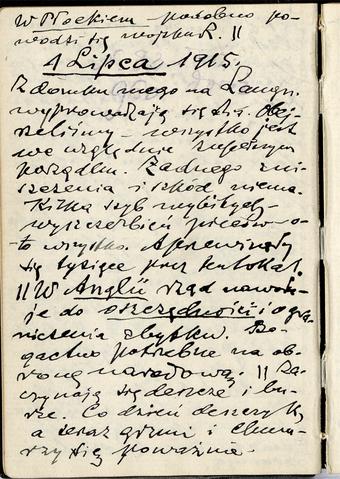 w Płockiem – podobno po-
wodzi się wojsku R. ||
1 Lipca 1915.
Z domku mego na Langi.
wyprowadzają się d.i. Obej-
rzeliśmy – wszystko jest
we względnie zupełnym
porządku. Żadnego zni-
szczenia i szkód niema.
Kilka szyb wybitych –
wyszczerbień pieców – o-
to wszystko. A przewinęły
się tysiące przez ten lokal.
|| W Anglii rząd nawołu-
je do oszczędności i ogra-
niczenia zbytków. Bo-
gactwo potrzebne na ob-
ronę narodową. || Za-
czynają się deszcze i bu-
rze. Co dzień deszczyk,
a teraz grzmi i chmu-
rzy się poważnie.